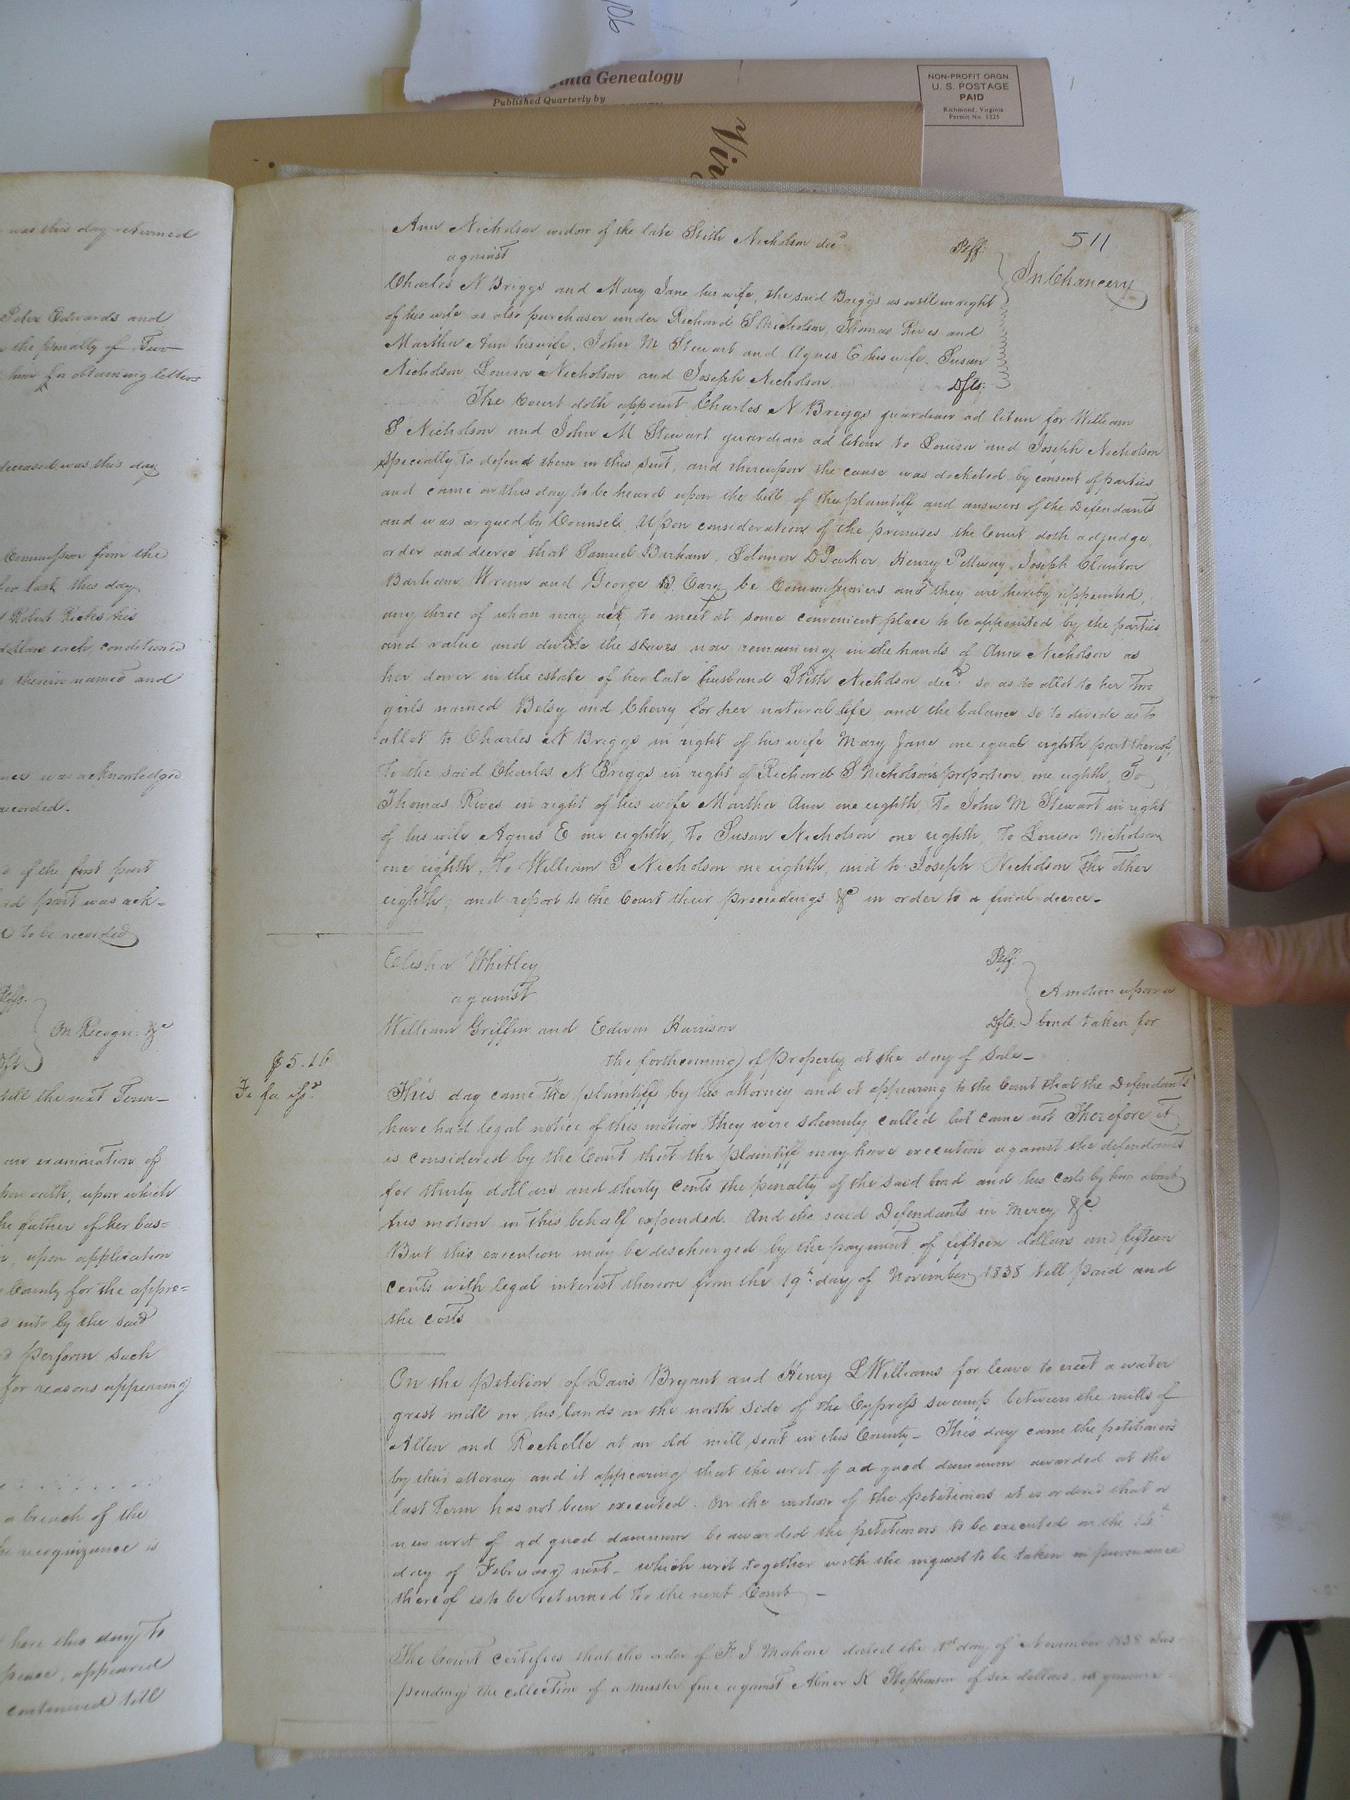 106
Virginia Genealogy
Published Quarterly by
NON-PROFIT ORGN
U. S. POSTAGE
PAID
Richmond, Virginia
Permit No. 1225
Vir
was this day returned
Peter Edwards and
the penalty of Two
him for obtaining letters
deceased was this day
Commissor from the
last this day
Robert Ricks his
dollars each, conditioned
therein named and
was acknowledged
recorded.
of the first part
part was ack-
to be recorded
Plffs.
On Recogn: &c
till the next Term-
an examination of
oath, upon which
the father of her bas=
upon application
County for the appre=
into by the said
perform such
for reasons appearing
a breach of the
recognizance is
here this day to
peace, appeared
continued till
511
Ann Nicholson widow of the late Stith Nicholson decd Plff.
against
In Chancery
Charles N Briggs and Mary Jane his wife, the said Briggs as well in right
of his wife as also purchaser under Richard S Nicholson, Thomas Rives and
Martha Ann his wife, John M Stewart and Agnes E his wife, Susan
Nicholson, Louisa Nicholson and Joseph Nicholson Dfts:
The Court doth appoint Charles N Briggs guardian ad litem for William
S Nicholson and John M Stewart guardian ad litem to Louisa and Joseph Nicholson
specially to defend them in this suit, and thereupon the cause was docketed by consent of parties
and came on this day to be heard upon the bill of the plaintiff and answers of the Defendants
and was argued by Counsel. Upon consideration of the premises the Court doth adjudge
order and decree that Samuel Barham, Solomon D Parker Henry Pettway, Joseph Clanton
Barham Wrenn and George Cary be Commissioners and they are hereby appointed,
any three of whom may act, to meet at some convenient place to be appointed by the parties
and value and divide the slaves now remaining in the hands of Ann Nicholson as
her dower in the estate of her late husband Stith Nicholson decd so as to allot to her Two
girls named Betsy and Cherry for her natural life and the balance so to divide as to
allot to Charles N Briggs in right of his wife Mary Jane one equal eighth part thereof,
To the said Charles N Briggs in right of Richard S Nicholson's proportion, one eighth, To
Thomas Rives in right of his wife Martha Ann one eighth, To John M Stewart in right
of his wife Agnes E one eighth, to Susan Nicholson one eighth, to Louisa Nicholson
one eighth, to William S Nicholson one eighth, and to Joseph Nicholson the other
eighth, and report to the Court their proceedings &c in order to a final decree-
Elisha Whitley Plff.
against
A motion upon a
William Griffin and Edwin Harrison Dfts. bond taken for
$5.16
the forthcoming of property at the day of Sale-
Fi fa
This day came the plaintiff by his attorney and it appearing to the Court that the Defendants
have had legal notice of this motion they were solemnly called but came not Therefore it
is considered by the Court that the plaintiff may have execution against the defendants
for thirty dollars and thirty cents the penalty of the said bond and his costs by him about
his motion in this behalf expended. And the said Defendants in Mercy &c
But this execution may be discharged by the payment of fifteen dollars and fifteen
cents with legal interest thereon from the 19th day of November 1838 till paid and
the costs
On the petition of Davis Bryant and Henry L Williams for leave to erect a water
grist mill on his lands on the north side of the Cypress swamp between the mills of
Allen and Rochelle at an old mill seat in this County- This day came the petitioners
by their attorney and it appearing that the writ of ad quod damnum awarded at the
last Term has not been executed. On the motion of the petitioners it is ordered that a
new writ of ad quod damnum be awarded the petitioners to be executed on the
day of February next- which writ together with the inquest to be taken in pursuance
thereof is to be returned to the next Court-
The Court certifies that the order of F J Mahone dated the 1st day of November 1838 sus
pending the collection of a muster fine against Abner K Stephenson of six dollars, is genuine